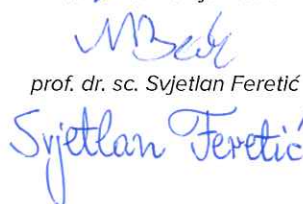 prof. dr. sc. Svjetlan Feretić
Svjetlan Feretić